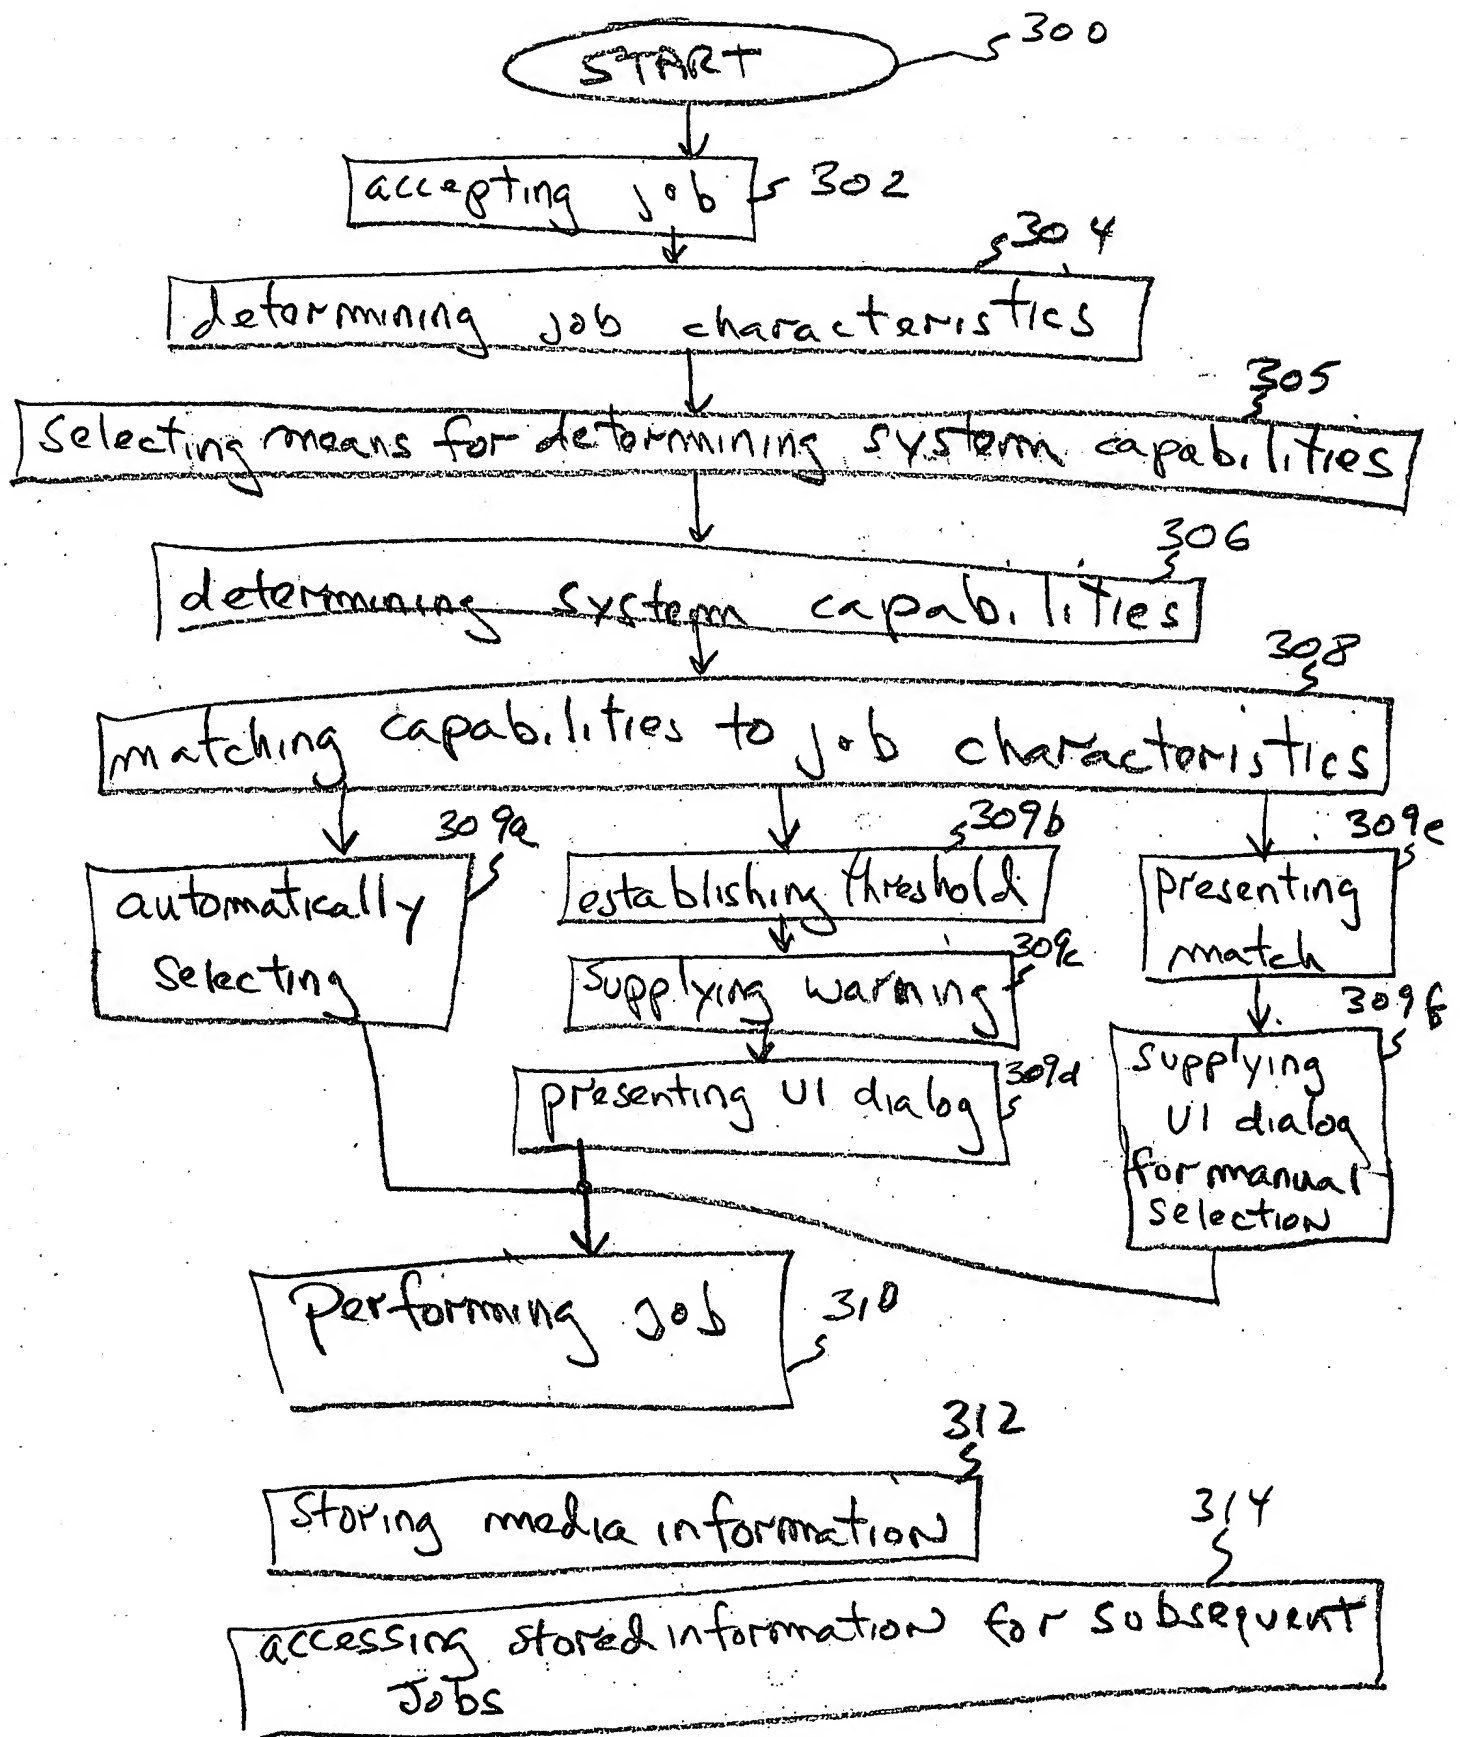 300
START
accepting job
302
304
determining job characteristics
305
selecting means for determining system capabilities
306
determining system capabilities
308
matching capabilities to job characteristics
309a
309b
309e
automatically
selecting
establishing threshold
presenting
match
309c
supplying warning
309f
309d
presenting UI dialog
supplying
UI dialog
for manual
selection
performing job
310
312
storing media information
314
accessing stored information for subsequent
jobs